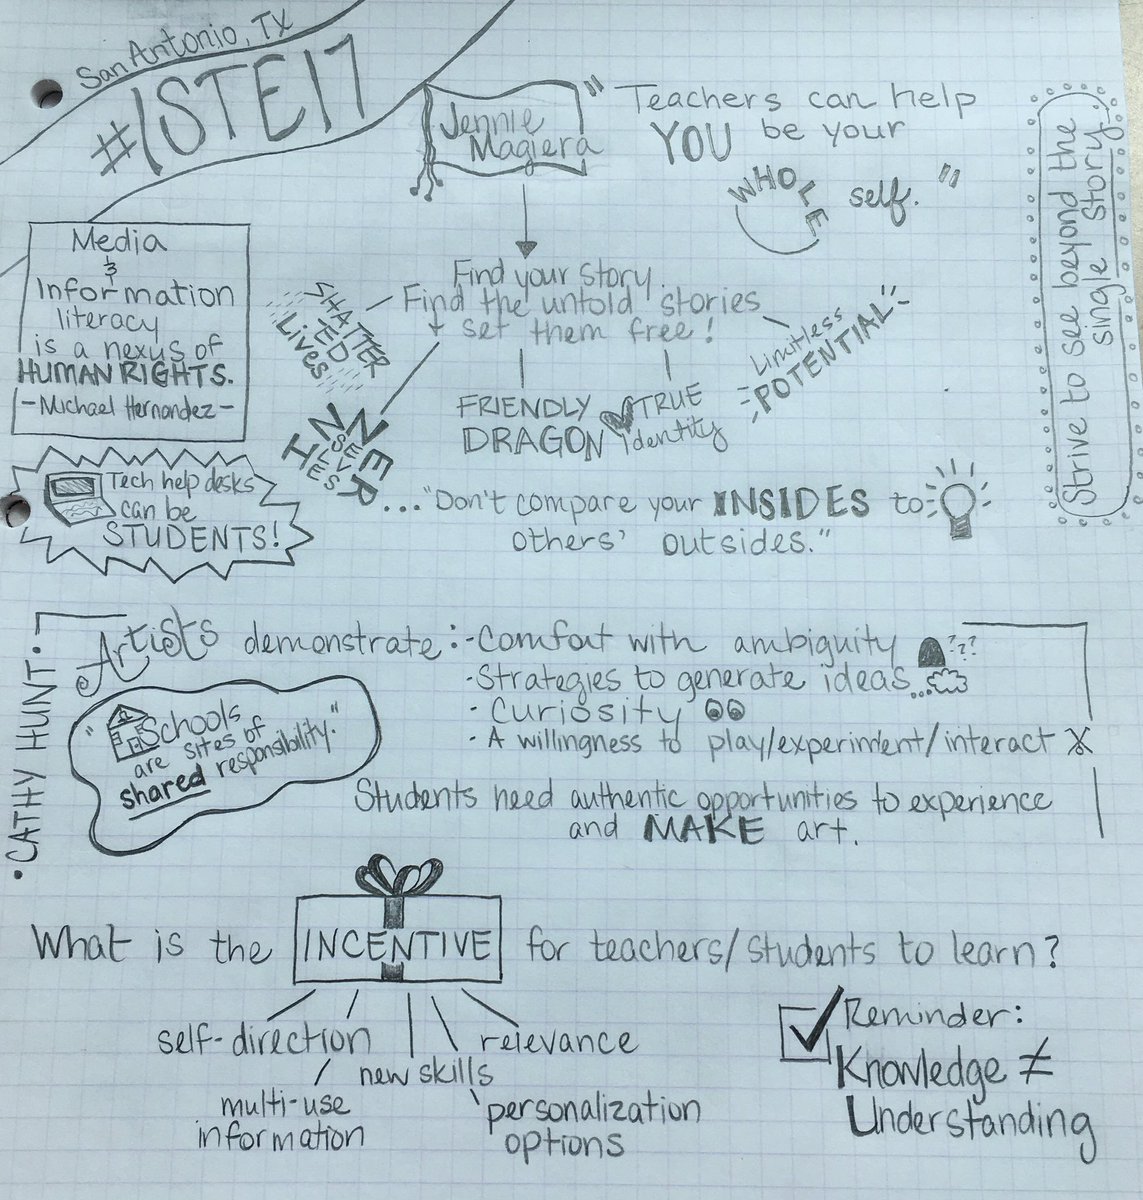 San Antonio, Tx
#ISTE17
Jennie
Magiera
"Teachers can help
YOU be your
WHOLE self."
Strive to see beyond the
single story.
Media
&
Information
literacy
is a nexus of
HUMAN RIGHTS.
-Michael Hernandez-
Find your story.
Find the untold stories
+ set them free!
SHATTER
ED
Lives
Limitless
POTENTIAL
FRIENDLY
DRAGON
TRUE
identity
INNER
HESSELVES
Tech help desks
can be
STUDENTS!
..."Don't compare your INSIDES to
others' outsides."
•CATHY HUNT•
Artists demonstrate:
-Comfort with ambiguity ???
-Strategies to generate ideas...
-Curiosity
-A willingness to play/experiment/interact
"Schools
are sites of
shared responsibility."
Students need authentic opportunities to experience
and MAKE art.
What is the INCENTIVE for teachers/students to learn?
self-direction
relevance
new skills
multi-use
information
personalization
options
Reminder:
Knowledge ≠
Understanding